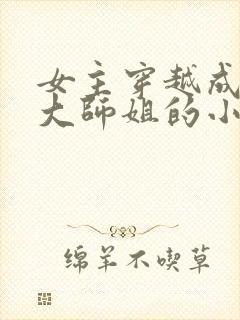 女主穿越成
大师姐的小
绵羊不喫草